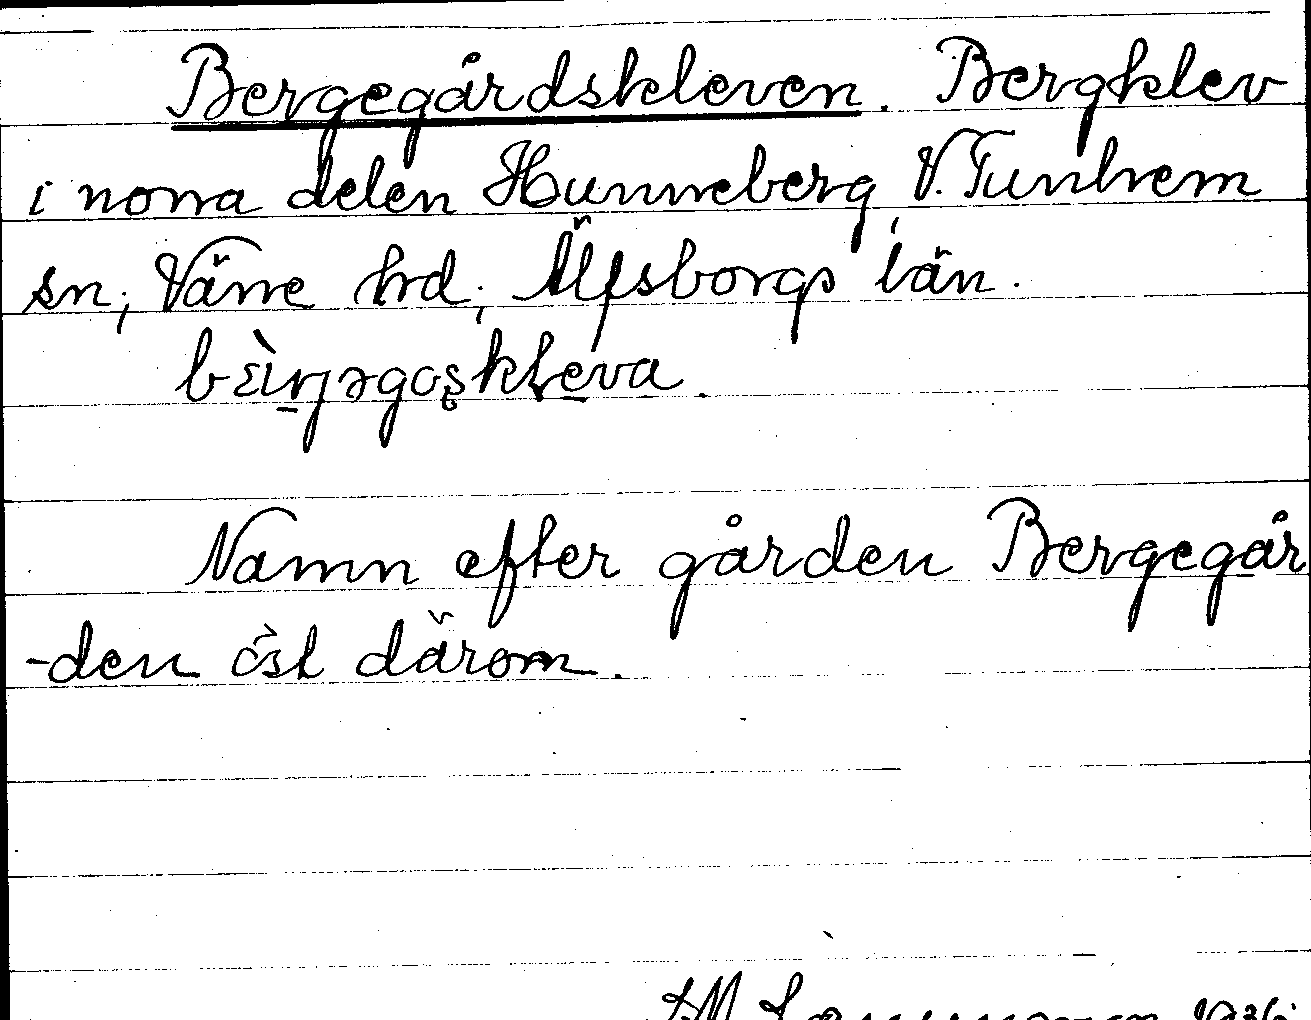 Bergegårdskleven. Bergklev
i norra delen Hunneberg, V. Tunhem
sn, Väne hd, Älfsborgs län.
Namn efter gården Bergegår
-den öst därom.